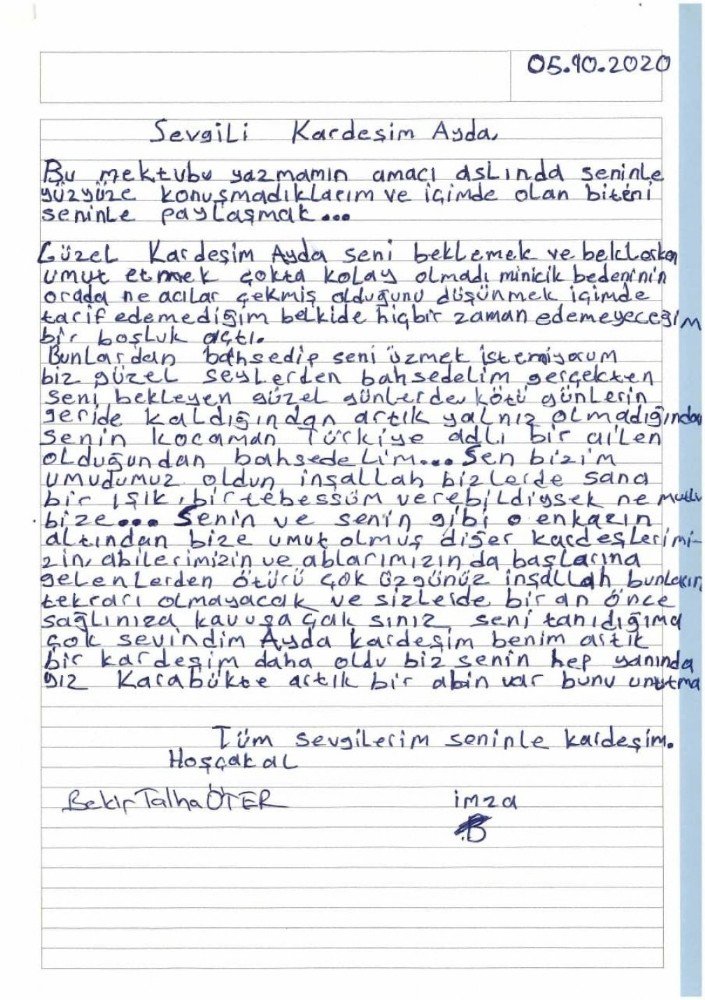 05.10.2020
Sevgili Kardeşim Ayda,
Bu mektubu yazmamın amacı aslında seninle
yüzyüze konuşmadıklarım ve içimde olan biteni
seninle paylaşmak...
Güzel Kardeşim Ayda seni beklemek ve beklerken
umut etmek çokta kolay olmadı minicik bedeninin
orada ne acılar çekmiş olduğunu düşünmek içimde
tarif edemediğim belkide hiçbir zaman edemeyeceğim
bir boşluk açtı.
Bunlardan bahsedip seni üzmek istemiyorum
biz güzel şeylerden bahsedelim gerçekten
seni bekleyen güzel günlerde, kötü günlerin
geride kaldığından artık yalnız olmadığından
senin kocaman Türkiye adlı bir ailen
olduğundan bahsedelim... Sen bizim
umudumuz oldun inşallah bizlerde sana
bir ışık, bir tebessüm verebildiysek ne mutlu
bize... Senin ve senin gibi o enkazın
altından bize umut olmuş diğer kardeşlerimi-
zin, abilerimizin ve ablarımızın da başlarına
gelenlerden ötürü çok üzgünüz inşallah bunların
tekrarı olmayacak ve sizlerde bir an önce
sağlınıza kavuşaçak sınız, seni tanıdığıma
çok sevindim Ayda kardeşim benim artık
bir kardeşim daha oldu biz senin hep yanında
yız Karabükte artık bir abin var bunu unutma
Tüm sevgilerim seninle kardeşim.
Hoşçakal
Bekir Talha ÖTER imza
B